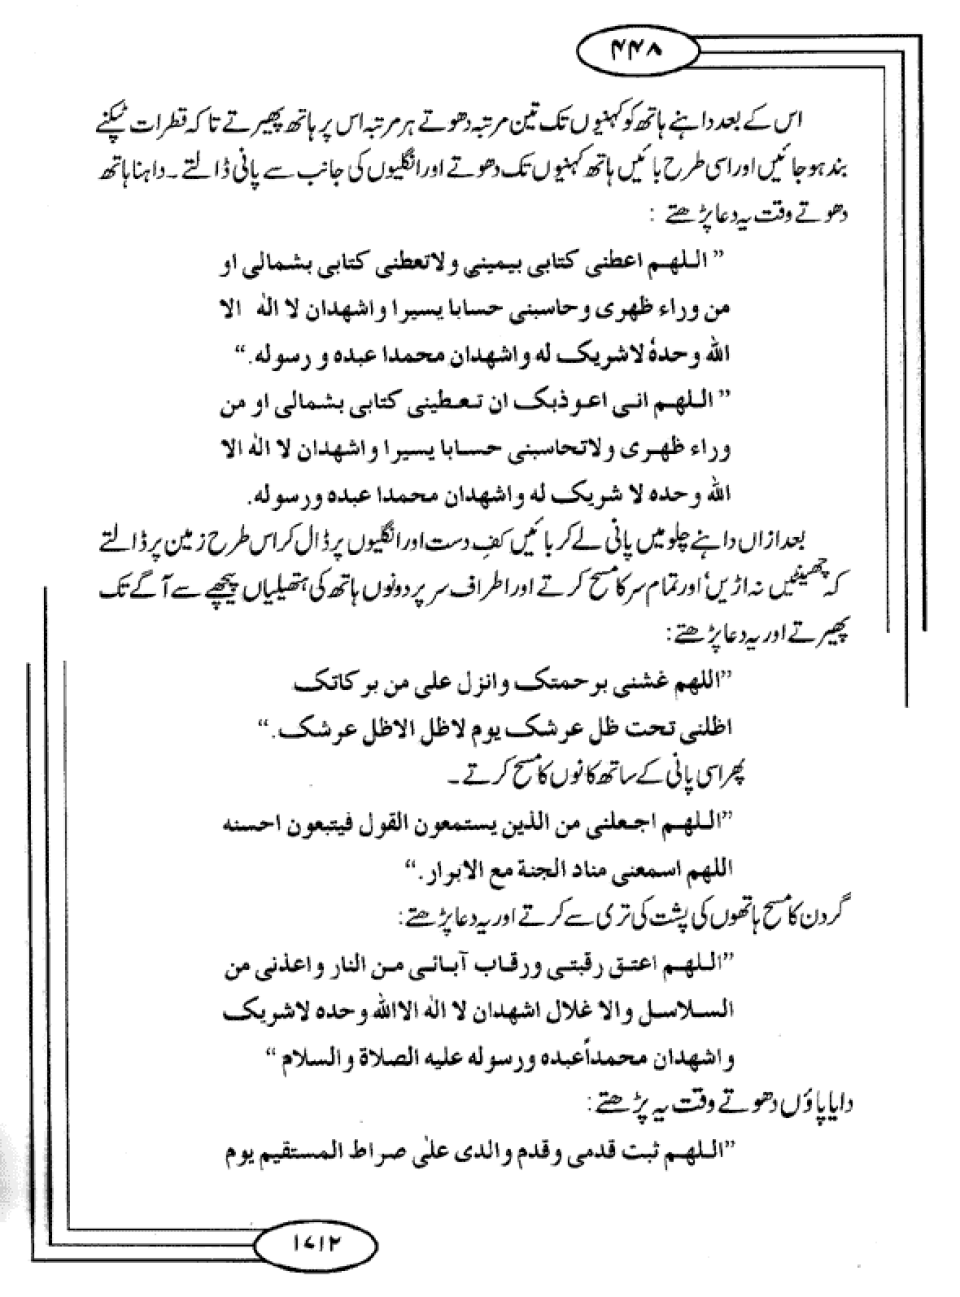 ۴۴۸
اس کے بعد داہنے ہاتھ کو کہنیوں تک تین مرتبہ دھوتے ہر مرتبہ اس پر ہاتھ پھیرتے تاکہ قطرات ٹپکنے
بند ہو جائیں اور اسی طرح بائیں ہاتھ کہنیوں تک دھوتے اور انگلیوں کی جانب سے پانی ڈالتے۔ داہنا ہاتھ
دھوتے وقت یہ دعا پڑھتے :
” اللهم اعطنی کتابی بیمینی ولاتعطنی کتابی بشمالی او
من وراء ظهری وحاسبنی حسابا یسیرا واشهدان لا الٰہ الا
اللّٰہ وحدہٗ لاشریک له واشهدان محمدا عبده و رسوله.“
” اللهم انی اعوذبک ان تعطینی کتابی بشمالی او من
وراء ظهری ولاتحاسبنی حسابا یسیرا واشهدان لا الٰه الا
اللّٰه وحده لا شریک له واشهدان محمدا عبده ورسوله.
بعد ازاں داہنے چلو میں پانی لے کر بائیں کفِ دست اور انگلیوں پر ڈال کر اس طرح زمین پر ڈالتے
کہ چھینٹیں نہ اڑیں‘ اور تمام سر کا مسح کرتے اور اطراف سر پر دونوں ہاتھ کی ہتھیلیاں پیچھے سے آگے تک
پھیرتے اور یہ دعا پڑھتے:
”اللهم غشنی برحمتک وانزل علی من برکاتک
اظلنی تحت ظل عرشک یوم لاظل الاظل عرشک.“
پھر اسی پانی کے ساتھ کانوں کا مسح کرتے۔
”اللهم اجعلنی من الذین یستمعون القول فیتبعون احسنه
اللهم اسمعنی مناد الجنة مع الابرار.“
گردن کا مسح ہاتھوں کی پشت کی تری سے کرتے اور یہ دعا پڑھتے:
”اللهم اعتق رقبتی ورقاب آبائی من النار واعذنی من
السلاسل والاغلال اشهدان لا اله الااللّٰه وحده لاشریک
واشهدان محمداًعبده ورسوله علیه الصلاة والسلام“
دایا پاؤں دھوتے وقت یہ پڑھتے:
”اللهم ثبت قدمی وقدم والدی علٰی صراط المستقیم یوم
۱۷۱۲